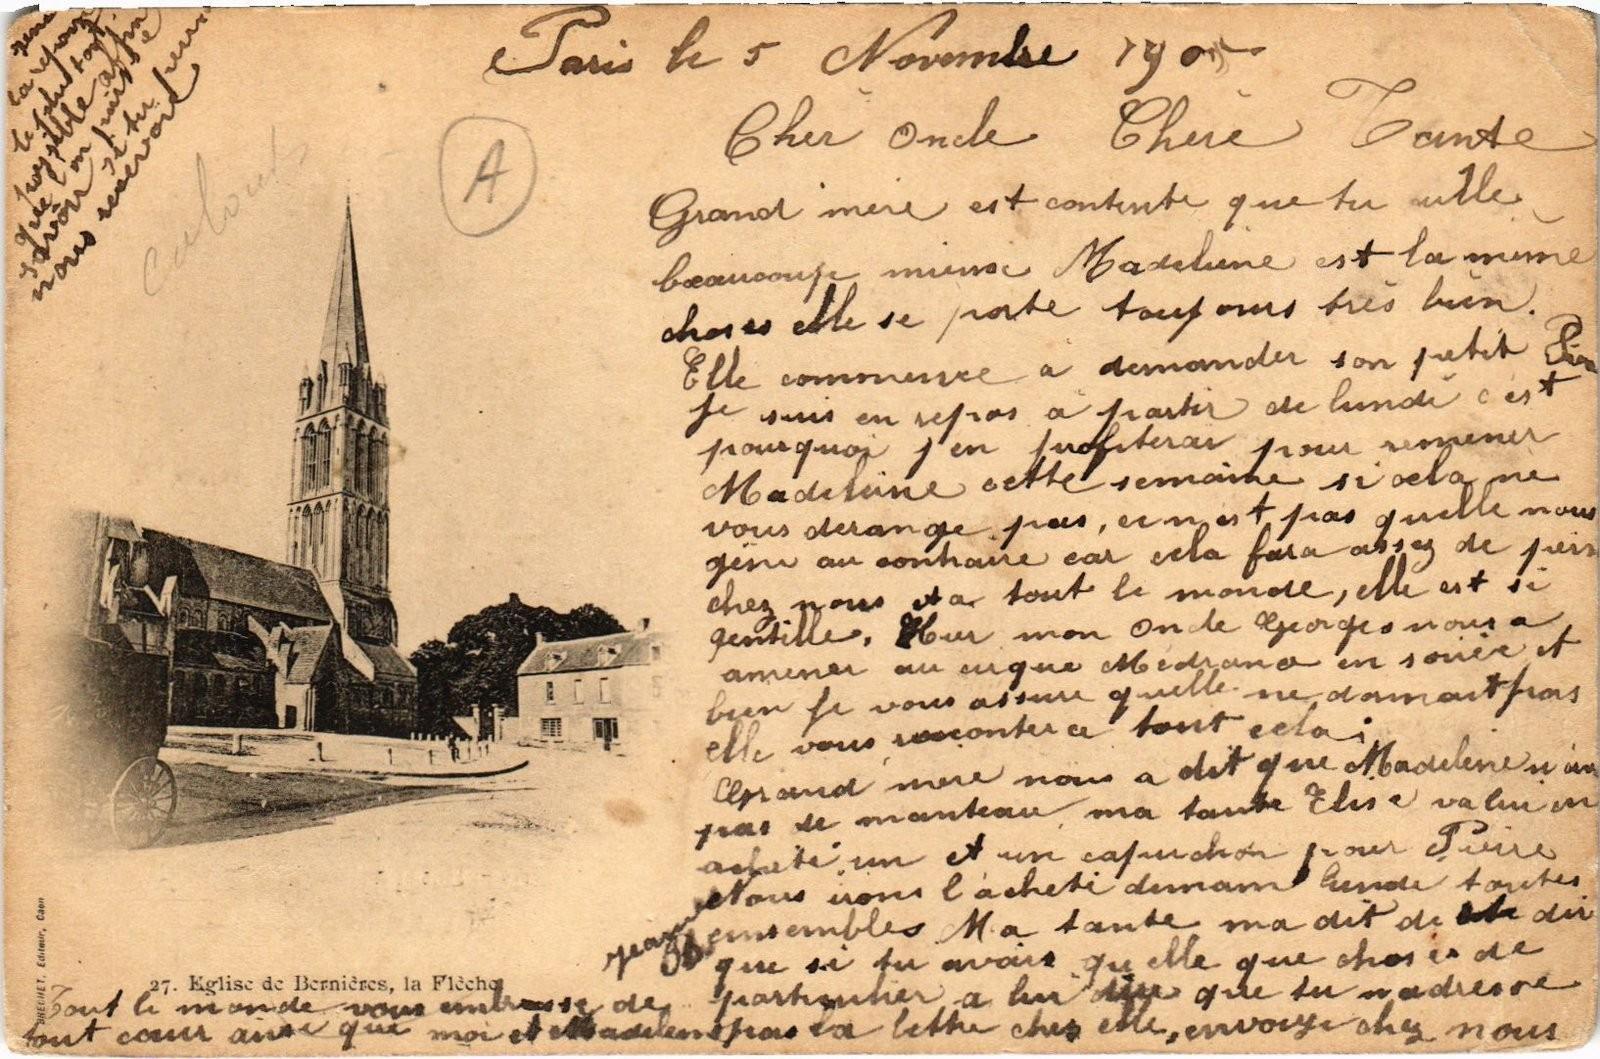 Paris le 5 Novembre 190
Cher Oncle Chère Tante
Grand mère est contente que tu aille
beaucoup mieux Madeleine est la même
choses elle se porte toujours très bien.
Elle commence a demander son petit
je suis en repos a partir de lundi c'est
pourquoi j'en profiterai pour remener
Madeleine cette semaine si cela ne
vous derange pas, ce n'est pas quelle nous
gène au contraire car cela fera assez de
chez nous et a tout le monde, elle est si
gentille. Hier mon Oncle Georges nous a
amener au cirque Médrano en soirée et
bien je vous assure quelle ne dormait pas
elle vous racontera tout cela;
Grand mère nous a dit que Madeleine n'
pas de manteau ma tante Elise va lui en
acheté un et un capuchon pour Pierre
Nous irons l'acheté demain lundi toutes
ensembles Ma tante ma dit de dir
que si tu avais quelle que choses de
particulier a lui dire que tu n'adresse
pas la lettre chez elle, envoye chez nous
la réponse
le plus tôt
possible afin
que l'on puisse
savoir si tu
nous recevoir
Cabourg
A
27. Eglise de Bernières, la Flèche
BRÉCHET, Editeur, Caen
Tout le monde vous embrasse de
tout cœur ainsi que moi et Madeleine